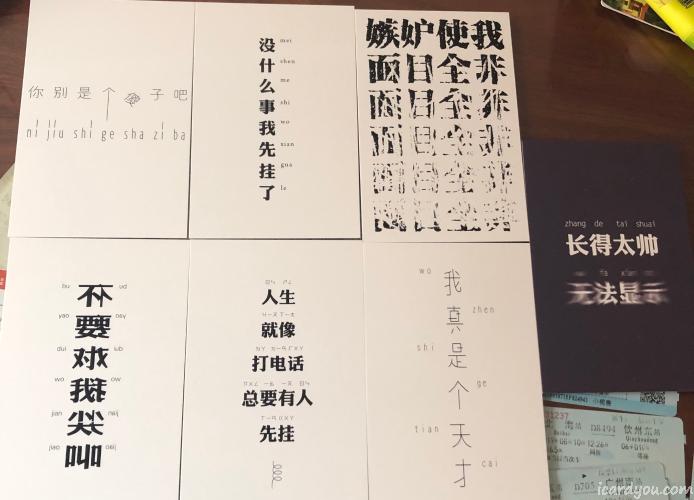 你别是个子吧
ni jiu shi ge sha zi ba
没 mei
什 shen
么 me
事 shi
我 wo
先 xian
挂 gua
了 le
嫉妒使我
面目全非
面目全非
面目全非
面目全非
面目全非
zhang de tai shuai
长得太帅
无法显示
bu 不
yao 要
dui 对
wo 我
jian 尖
jiao 叫
人生
就像
打电话
总要有人
先挂
wo 我
真 zhen
shi 是
个 ge
tian 天
才 cai
D8494 钦州东站
Qinzhoudong
12:26
广州南站
icardyou.com